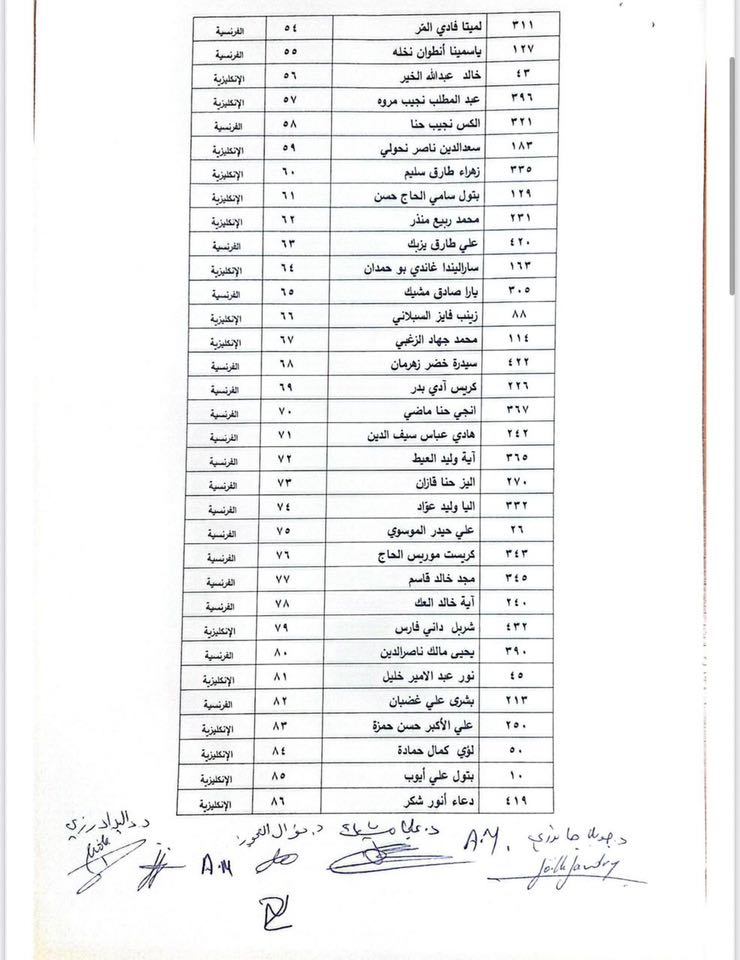 ٣١١ لميتا فادي المّر ٥٤ الفرنسية
١٢٧ ياسمينا أنطوان نخله ٥٥ الفرنسية
٤٣ خالد عبدالله الخير ٥٦ الإنكليزية
٣٩٦ عبد المطلب نجيب مروه ٥٧ الإنكليزية
٣٢١ الكس نجيب حنا ٥٨ الفرنسية
١٨٣ سعدالدين ناصر نحولي ٥٩ الإنكليزية
٣٣٥ زهراء طارق سليم ٦٠ الإنكليزية
١٢٩ بتول سامي الحاج حسن ٦١ الإنكليزية
٢٣١ محمد ربيع منذر ٦٢ الإنكليزية
٤٢٠ علي طارق يزبك ٦٣ الفرنسية
١٦٣ ساراليندا غاندي بو حمدان ٦٤ الإنكليزية
٣٠٥ يارا صادق مشيك ٦٥ الفرنسية
٨٨ زينب فايز السبلاني ٦٦ الإنكليزية
١١٤ محمد جهاد الزغبي ٦٧ الإنكليزية
٤٢٢ سيدرة خضر زهرمان ٦٨ الفرنسية
٢٢٦ كريس آدي بدر ٦٩ الفرنسية
٣٦٧ انجي حنا ماضي ٧٠ الفرنسية
٢٤٢ هادي عباس سيف الدين ٧١ الفرنسية
٣٦٥ آية وليد العيط ٧٢ الفرنسية
٢٧٠ اليز حنا قازان ٧٣ الفرنسية
٣٣٢ اليا وليد عوّاد ٧٤ الفرنسية
٢٦ علي حيدر الموسوي ٧٥ الفرنسية
٣٤٣ كريست موريس الحاج ٧٦ الفرنسية
٣٤٥ مجد خالد قاسم ٧٧ الفرنسية
٢٤٠ آية خالد العك ٧٨ الفرنسية
٤٣٢ شربل داني فارس ٧٩ الإنكليزية
٣٩٠ يحيى مالك ناصرالدين ٨٠ الفرنسية
٤٥ نور عبد الامير خليل ٨١ الإنكليزية
٢١٣ بشرى علي غضبان ٨٢ الفرنسية
٢٥٠ علي الأكبر حسن حمزة ٨٣ الإنكليزية
٥٠ لؤي كمال حمادة ٨٤ الإنكليزية
١٠ بتول علي أيوب ٨٥ الإنكليزية
٤١٩ دعاء أنور شكر ٨٦ الإنكليزية
A.Y.
A.M